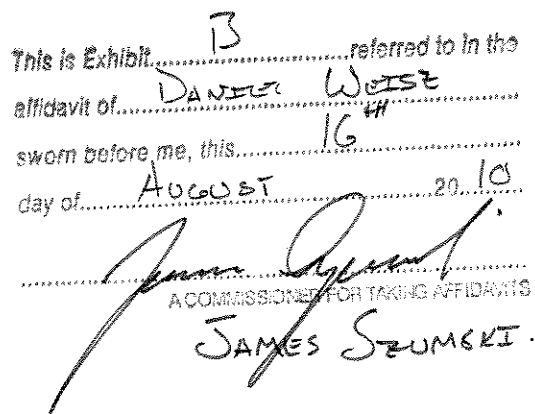 This is Exhibit B referred to in the
affidavit of DANIEL WEISZ
sworn before me, this 16th
day of AUGUST 20 10
A COMMISSIONER FOR TAKING AFFIDAVITS
JAMES SZUMSKI.